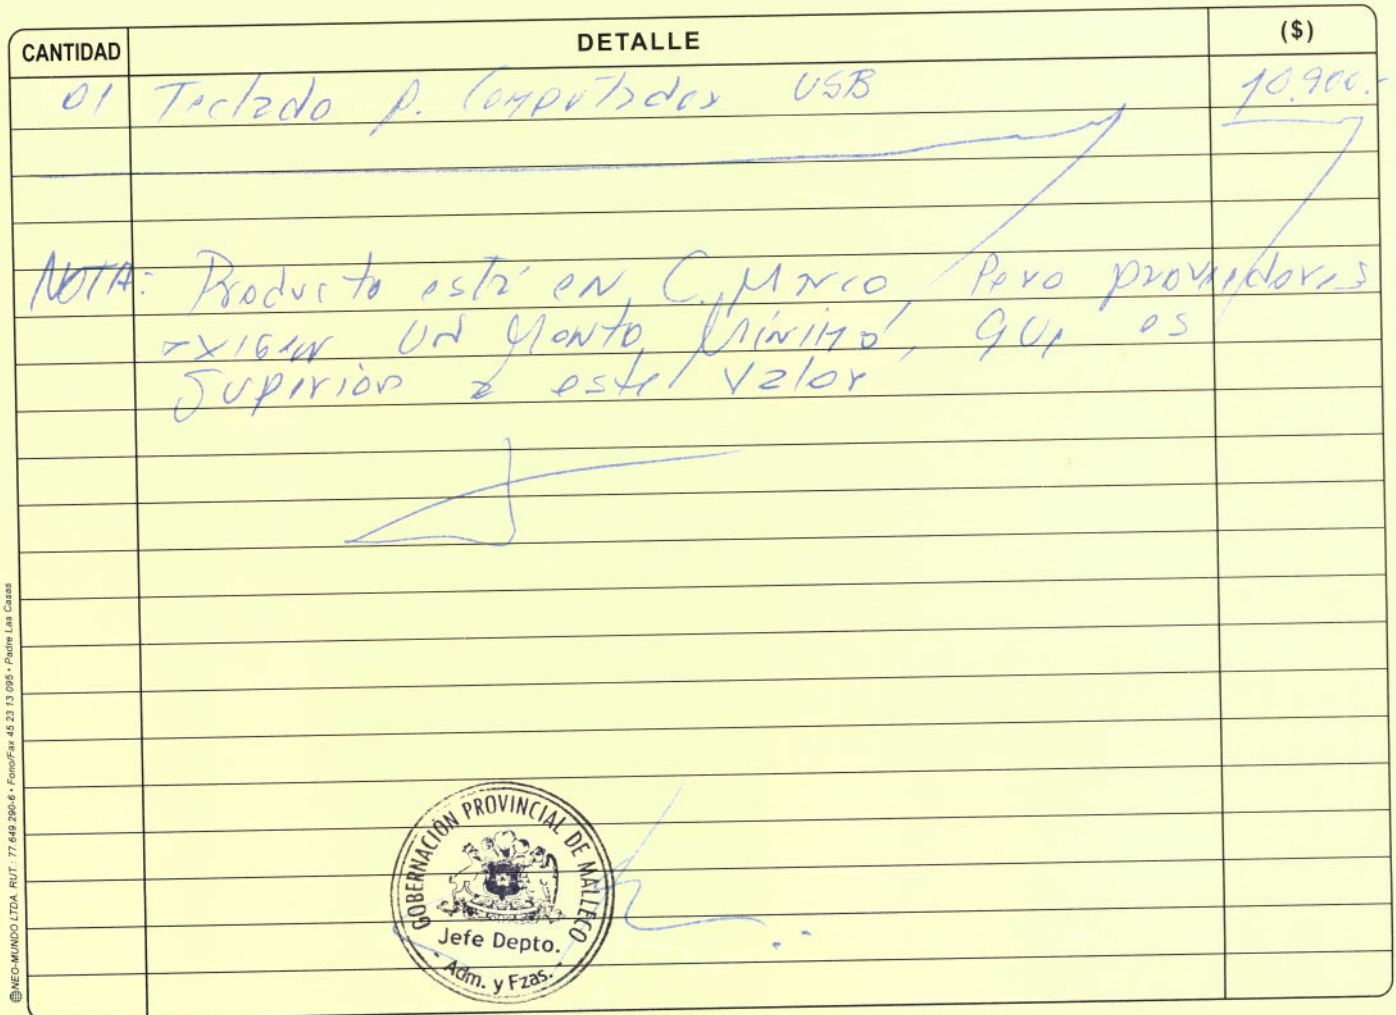 CANTIDAD DETALLE ($)
01 Teclado p. Computador USB 10.900.-
NOTA: Producto está en C. Marco, Pero proveedores
exigen un Monto Mínimo, que es
Superior a este valor
GOBERNACIÓN PROVINCIAL DE MALLECO
Jefe Depto.
- Adm. y Fzas. -
NEO-MUNDO LTDA. RUT.: 77.649.290-6 • Fono/Fax 45 23 13 095 • Padre Las Casas